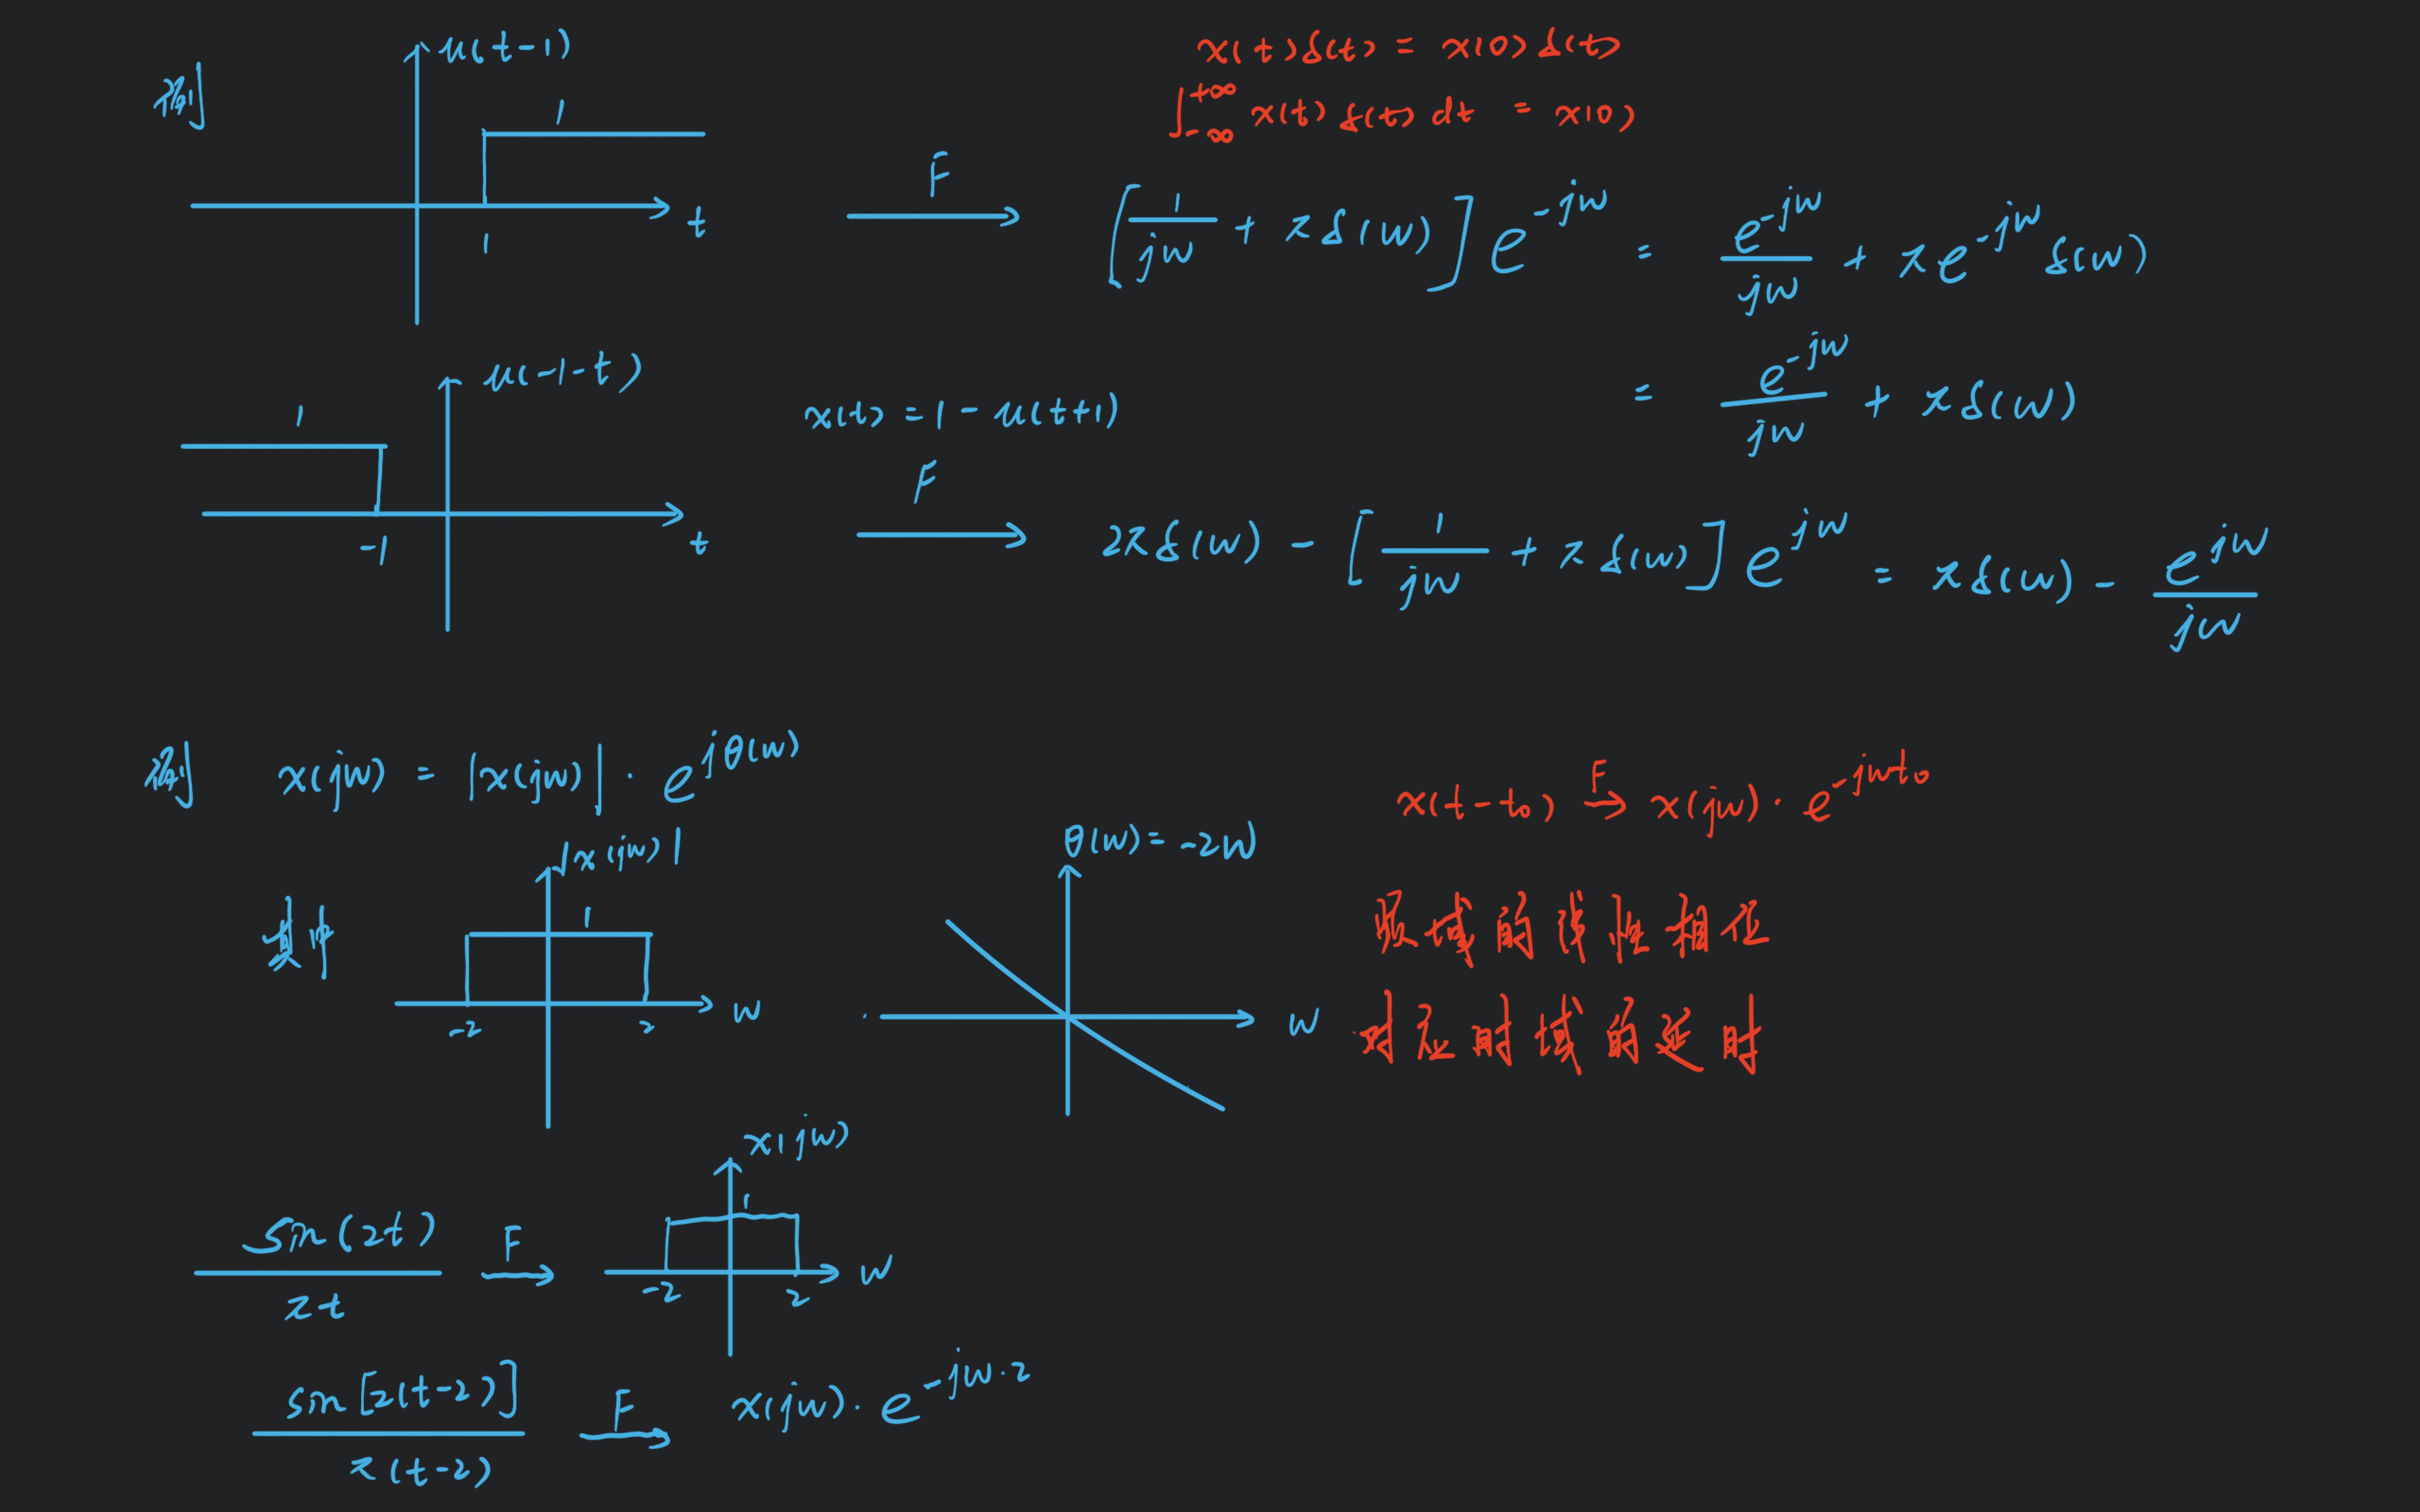 例
u(t-1)
1
t
1
x(t)δ(t) = x(0)δ(t)
∫_{-∞}^{+∞} x(t)δ(t)dt = x(0)
F
[1/jw + πδ(w)]e^{-jw} = e^{-jw}/jw + πe^{-jw}δ(w)
= e^{-jw}/jw + πδ(w)
u(-1-t)
1
-1
t
x(t) = 1 - u(t+1)
F
2πδ(w) - [1/jw + πδ(w)]e^{jw} = πδ(w) - e^{jw}/jw
例 x(jw) = |x(jw)|·e^{jθ(w)}
x(t-t₀) F→ x(jw)·e^{-jwt₀}
其中
|x(jw)|
1
-2
2
w
θ(w) = -2w
w
频域的线性相位
对应时域的延时
sin(2t)/πt F→
x(jw)
1
-2
2
w
sin[2(t-2)]/π(t-2) F→ x(jw)·e^{-jw·2}